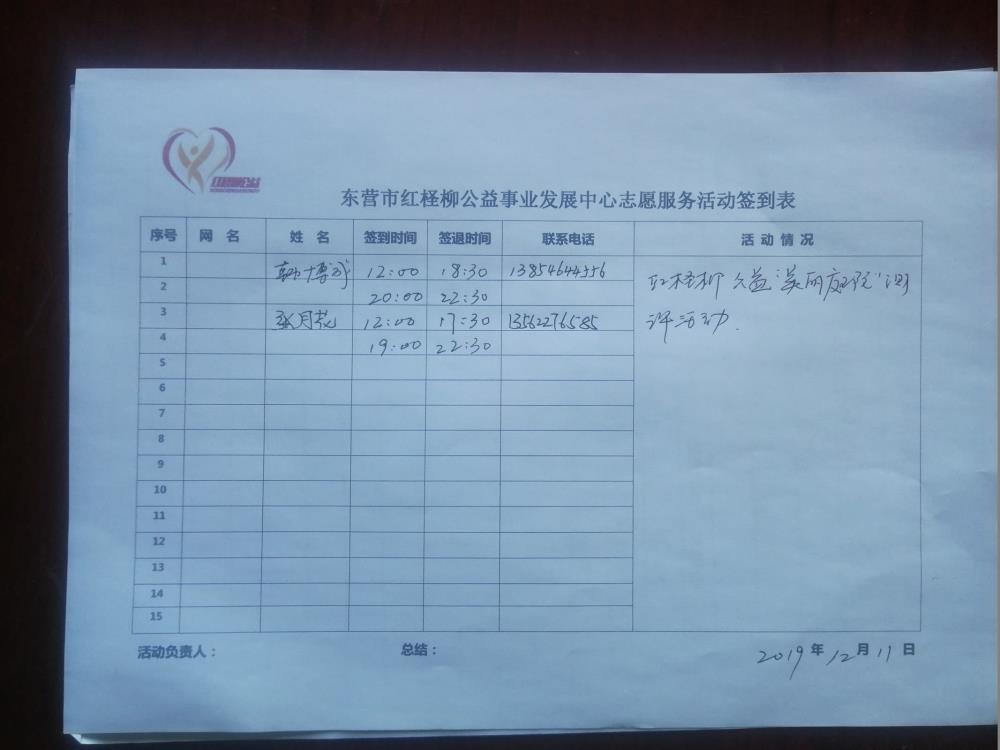 红柽柳公益
东营市红柽柳公益事业发展中心志愿服务活动签到表
序号 网 名 姓 名 签到时间 签退时间 联系电话 活 动 情 况
1 韩博成 12:00 18:30 13854644556 红柽柳公益"美丽庭院"测
2 20:00 22:30
3 张月花 12:00 17:30 13562276585 评活动.
4 19:00 22:30
5
6
7
8
9
10
11
12
13
14
15
活动负责人： 总结： 2019年12月11日